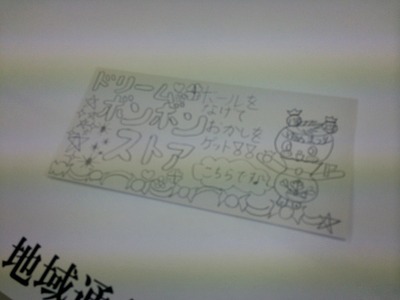 ドリーム
ボンボン
ストア
ボールを
なげて
おかしを
ゲット
こちらです
地域通